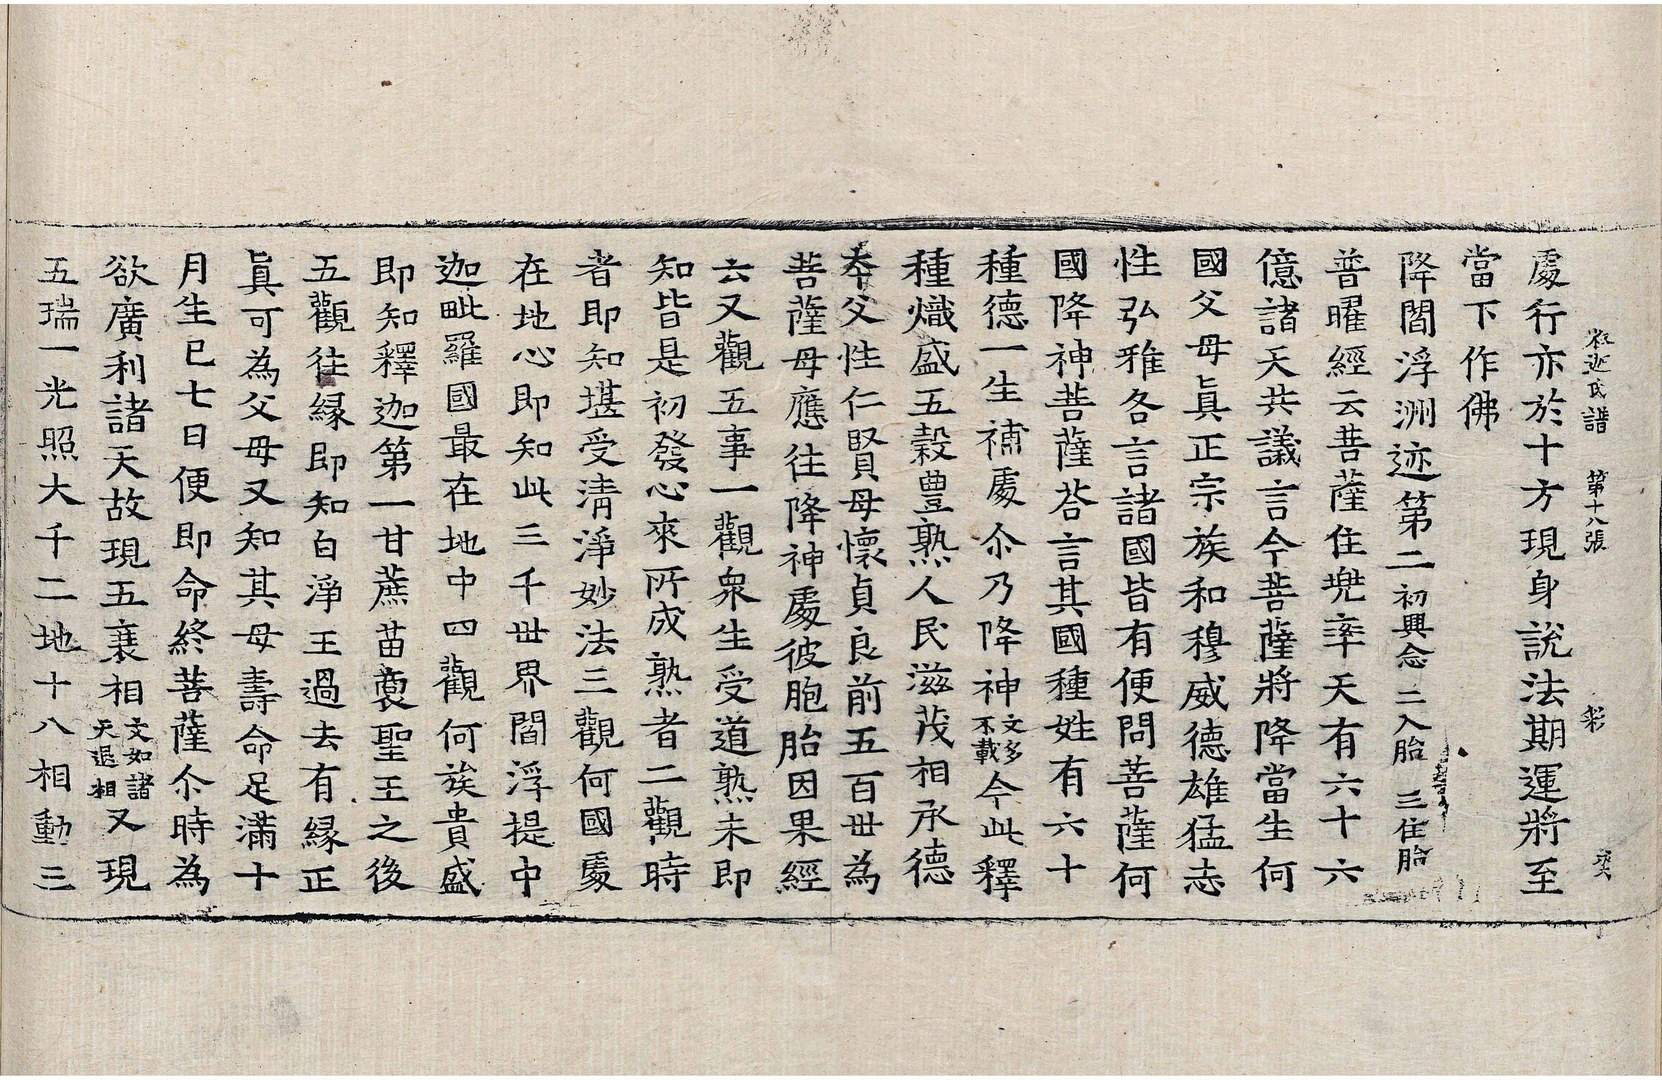 釋迦氏譜 第十八張 彩
處行亦於十方現身說法期運將至
當下作佛
降閻浮洲迹第二 初興念 二入胎 三住胎
普曜經云菩薩住兜率天有六十六
億諸天共議言今菩薩將降當生何
國父母眞正宗族和穆威德雄猛志
性弘雅各言諸國皆有便問菩薩何
國降神菩薩荅言其國種姓有六十
種德一生補處尒乃降神文多不載今此釋
種熾盛五穀豊熟人民滋茂相承德
本父性仁賢母懷貞良前五百世為
菩薩母應往降神處彼胞胎因果經
云又觀五事一觀衆生受道熟未即
知皆是初發心來所成熟者二觀時
者即知堪受清淨妙法三觀何國處
在地心即知此三千世界閻浮提中
迦毗羅國最在地中四觀何族貴盛
即知釋迦第一甘蔗苗裔聖王之後
五觀往緣即知白淨王過去有緣正
眞可為父母又知其母壽命足滿十
月生已七日便即命終菩薩尒時為
欲廣利諸天故現五衰相文如諸天退相又現
五瑞一光照大千二地十八相動三